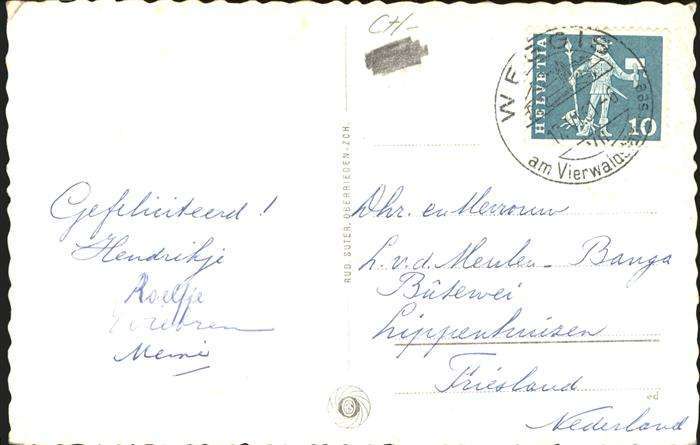 CH-
HELVETIA
10
WEGGIS
am Vierwalds
Gefeliciteerd!
Hendrikje
Roelfje
Meine
RUD. SUTER, OBERRIEDEN-ZCH.
Dhr. en Mevrouw
L. v. d. Meulen - Banga
Bûtewei
Lippenhuizen
Friesland
Nederland